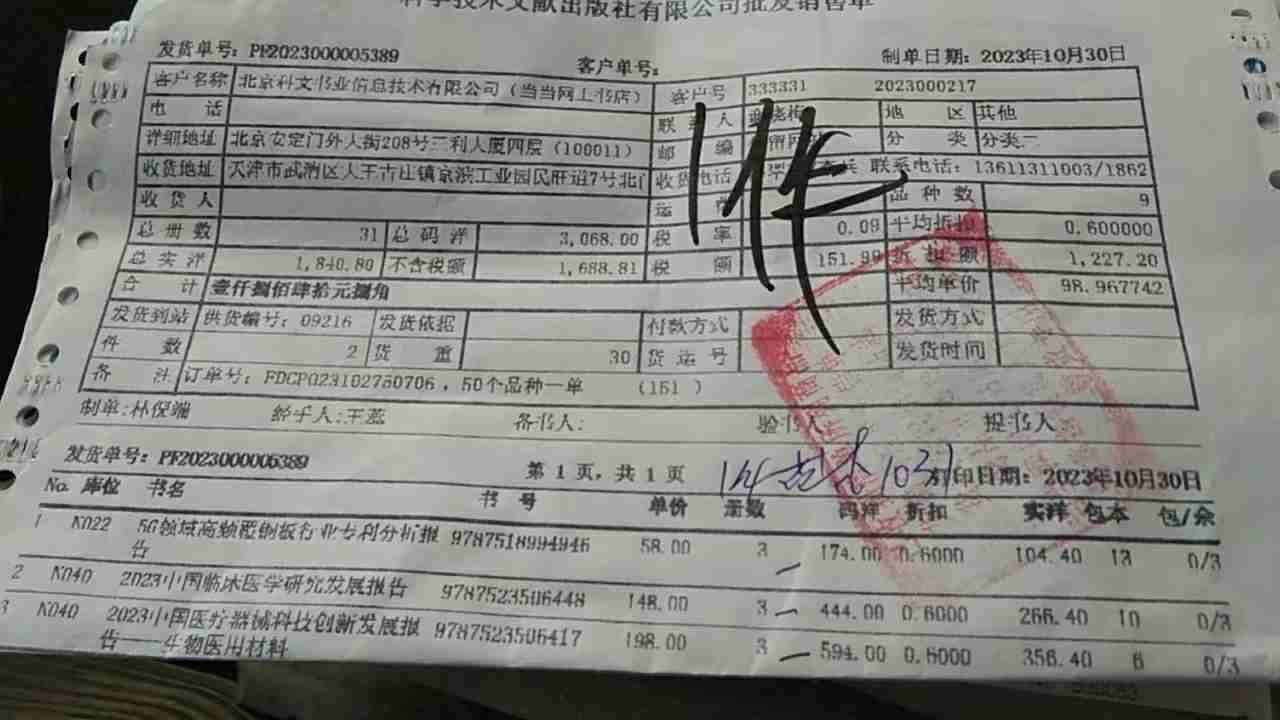 科学技术文献出版社有限公司批发销售单
发货单号：PF2023000005389 客户单号： 制单日期：2023年10月30日
客户名称 北京科文书业信息技术有限公司（当当网上书店） 客户号 333331 2023000217
电 话 联 人 地 区 其他
详细地址 北京安定门外大街208号三利大厦四层（100011） 邮 编 分 类 分类二
收货地址 天津市武清区大王古庄镇京滨工业园民旺道7号北门 收货电话 联系电话：13611311003/1862
收货人 运 品种数 9
总册数 31 总码洋 3,068.00 税 率 0.09 平均折扣 0.600000
总实洋 1,840.80 不含税额 1,688.81 税 额 151.99 折扣额 1,227.20
合 计 壹仟捌佰肆拾元捌角 平均单价 98.967742
发货到站 供货编号：09216 发货依据 付款方式 发货方式
件 数 2 货 重 30 货运号 发货时间
备 注 订单号：FDCP023102750706，50个品种一单 （151 ）
制单：林保端 经手人：王蕊 备书人： 验书人 提书人
发货单号：PF2023000005389 第 1 页，共 1 页 1031 打印日期：2023年10月30日
No. 库位 书名 书 号 单价 册数 码洋 折扣 实洋 包本 包/余
1 K022 5G领域高频覆铜板行业专利分析报告 9787518994946 58.00 3 174.00 0.6000 104.40 13 0/3
2 K040 2023中国临床医学研究发展报告 9787523506448 148.00 3 444.00 0.6000 266.40 10 0/3
3 K040 2023中国医疗器械科技创新发展报告——生物医用材料 9787523506417 198.00 3 594.00 0.6000 356.40 6 0/3